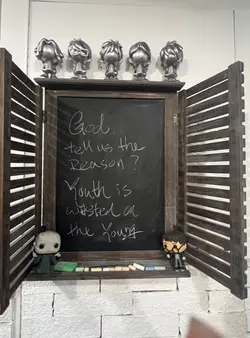 God,
tell us the
Reason?
Youth is
wasted on
the Young